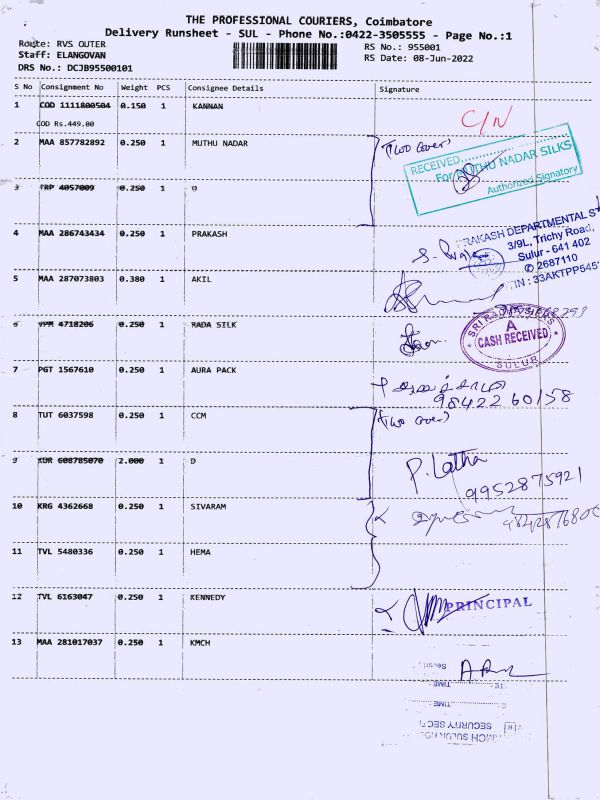 THE PROFESSIONAL COURIERS, Coimbatore
Delivery Runsheet - SUL - Phone No.:0422-3505555 - Page No.:1
Route: RVS OUTER
Staff: ELANGOVAN
DRS No.: DCJB95500101
RS No.: 955001
RS Date: 08-Jun-2022
S No Consignment No Weight PCS Consignee Details Signature
1 COD 1111800504 0.150 1 KANNAN C/N
COD Rs.449.00
2 MAA 857782892 0.250 1 MUTHU NADAR (Two cover)
RECEIVED
For MUTHU NADAR SILKS
Authorized Signatory
3 TRP 4057009 0.250 1 D
4 MAA 286743434 0.250 1 PRAKASH
PRAKASH DEPARTMENTAL
3/9L, Trichy Road,
Sulur - 641 402
✆ 2687110
5 MAA 287073803 0.380 1 AKIL
6 VPM 4718206 0.250 1 RADA SILK
A
CASH RECEIVED
SULUR
7 PGT 1567610 0.250 1 AURA PACK
98422 60158
8 TUT 6037598 0.250 1 CCM (Two cover)
9 KUR 608785070 2.000 1 D
P. Latha
9952875921
10 KRG 4362668 0.250 1 SIVARAM
11 TVL 5480336 0.250 1 HEMA
12 TVL 6163047 0.250 1 KENNEDY PRINCIPAL
13 MAA 281017037 0.250 1 KMCH
TIME :
TIME :
SECURITY SECTI